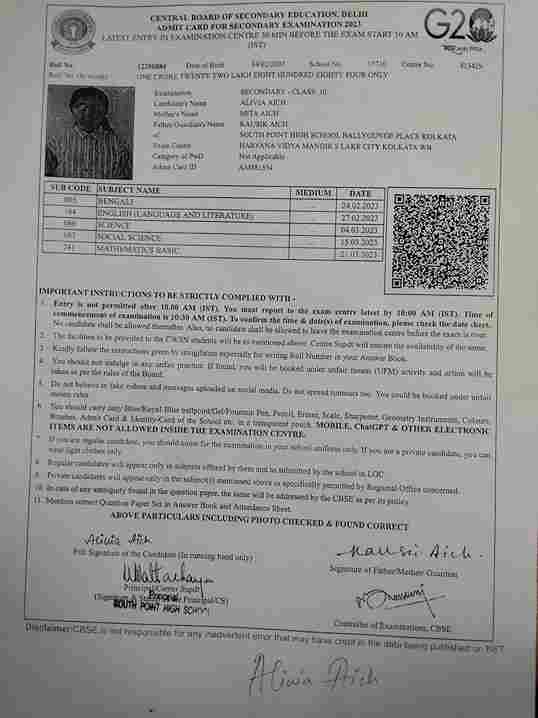 CENTRAL BOARD OF SECONDARY EDUCATION, DELHI
ADMIT CARD FOR SECONDARY EXAMINATION 2023
LATEST ENTRY IN EXAMINATION CENTRE 30 MIN BEFORE THE EXAM START 10 AM
(IST)
G20
Roll No. Date of Birth School No. Centre No.
Roll No (In words) ONE CRORE TWENTY TWO LAKH EIGHT HUNDRED EIGHTY FOUR ONLY
Examination SECONDARY - CLASS 10
Candidate's Name ALIVIA AICH
Mother's Name MITA AICH
Father/Guardian's Name KAUSIK AICH
of SOUTH POINT HIGH SCHOOL BALLYGUNGE PLACE KOLKATA
Exam Centre HARYANA VIDYA MANDIR S LAKE CITY KOLKATA WB
Category of PwD Not Applicable
Admit Card ID
SUB CODE SUBJECT NAME MEDIUM DATE
BENGALI 24.02.2023
184 ENGLISH (LANGUAGE AND LITERATURE) 27.02.2023
086 SCIENCE 04.03.2023
087 SOCIAL SCIENCE 15.03.2023
241 MATHEMATICS BASIC 21.03.2023
IMPORTANT INSTRUCTIONS TO BE STRICTLY COMPLIED WITH -
1. Entry is not permitted after 10.00 AM (IST). You must report to the exam centre latest by 10:00 AM (IST). Time of
commencement of examination is 10:30 AM (IST). To confirm the time & date(s) of examination, please check the date sheet.
No candidate shall be allowed thereafter. Also, no candidate shall be allowed to leave the examination centre before the exam is over.
2. The facilities to be provided to the CWSN students will be as mentioned above. Centre Supdt will ensure the availability of the same.
3. Kindly follow the instructions given by invigilators especially for writing Roll Number in your Answer Book.
4. You should not indulge in any unfair practice. If found, you will be booked under unfair means (UFM) activity and action will be
taken as per the rules of the Board.
5. Do not believe in fake videos and messages uploaded on social media. Do not spread rumours too. You could be booked under unfair
means rules
6. You should carry only Blue/Royal Blue ballpoint/Gel/Fountain Pen, Pencil, Eraser, Scale, Sharpener, Geometry Instruments, Colours,
Brushes, Admit Card & Identity-Card of the School etc. in a transparent pouch. MOBILE, ChatGPT & OTHER ELECTRONIC
ITEMS ARE NOT ALLOWED INSIDE THE EXAMINATION CENTRE.
7. If you are regular candidate, you should come for the examination in your school uniform only. If you are a private candidate, you can
wear light clothes only.
8. Regular candidates will appear only in subjects offered by them and as submitted by the school in LOC
9. Private candidates will appear only in the subject(s) mentioned above as specifically permitted by Regional Office concerned.
10. In case of any ambiguity found in the question paper, the same will be addressed by the CBSE as per its policy.
11. Mention correct Question Paper Set in Answer Book and Attendance Sheet.
ABOVE PARTICULARS INCLUDING PHOTO CHECKED & FOUND CORRECT
Alivia Aich
Full Signature of the Candidate (In running hand only)
Kausik Aich.
Signature of Father/Mother/Guardian
Principal/Centre Supdt
(Signature & Principal/CS)
Principal
SOUTH POINT HIGH SCHOOL
Controller of Examinations, CBSE
Disclaimer:CBSE is not responsible for any inadvertent error that may have crept in the data being published on NET
Alivia Aich